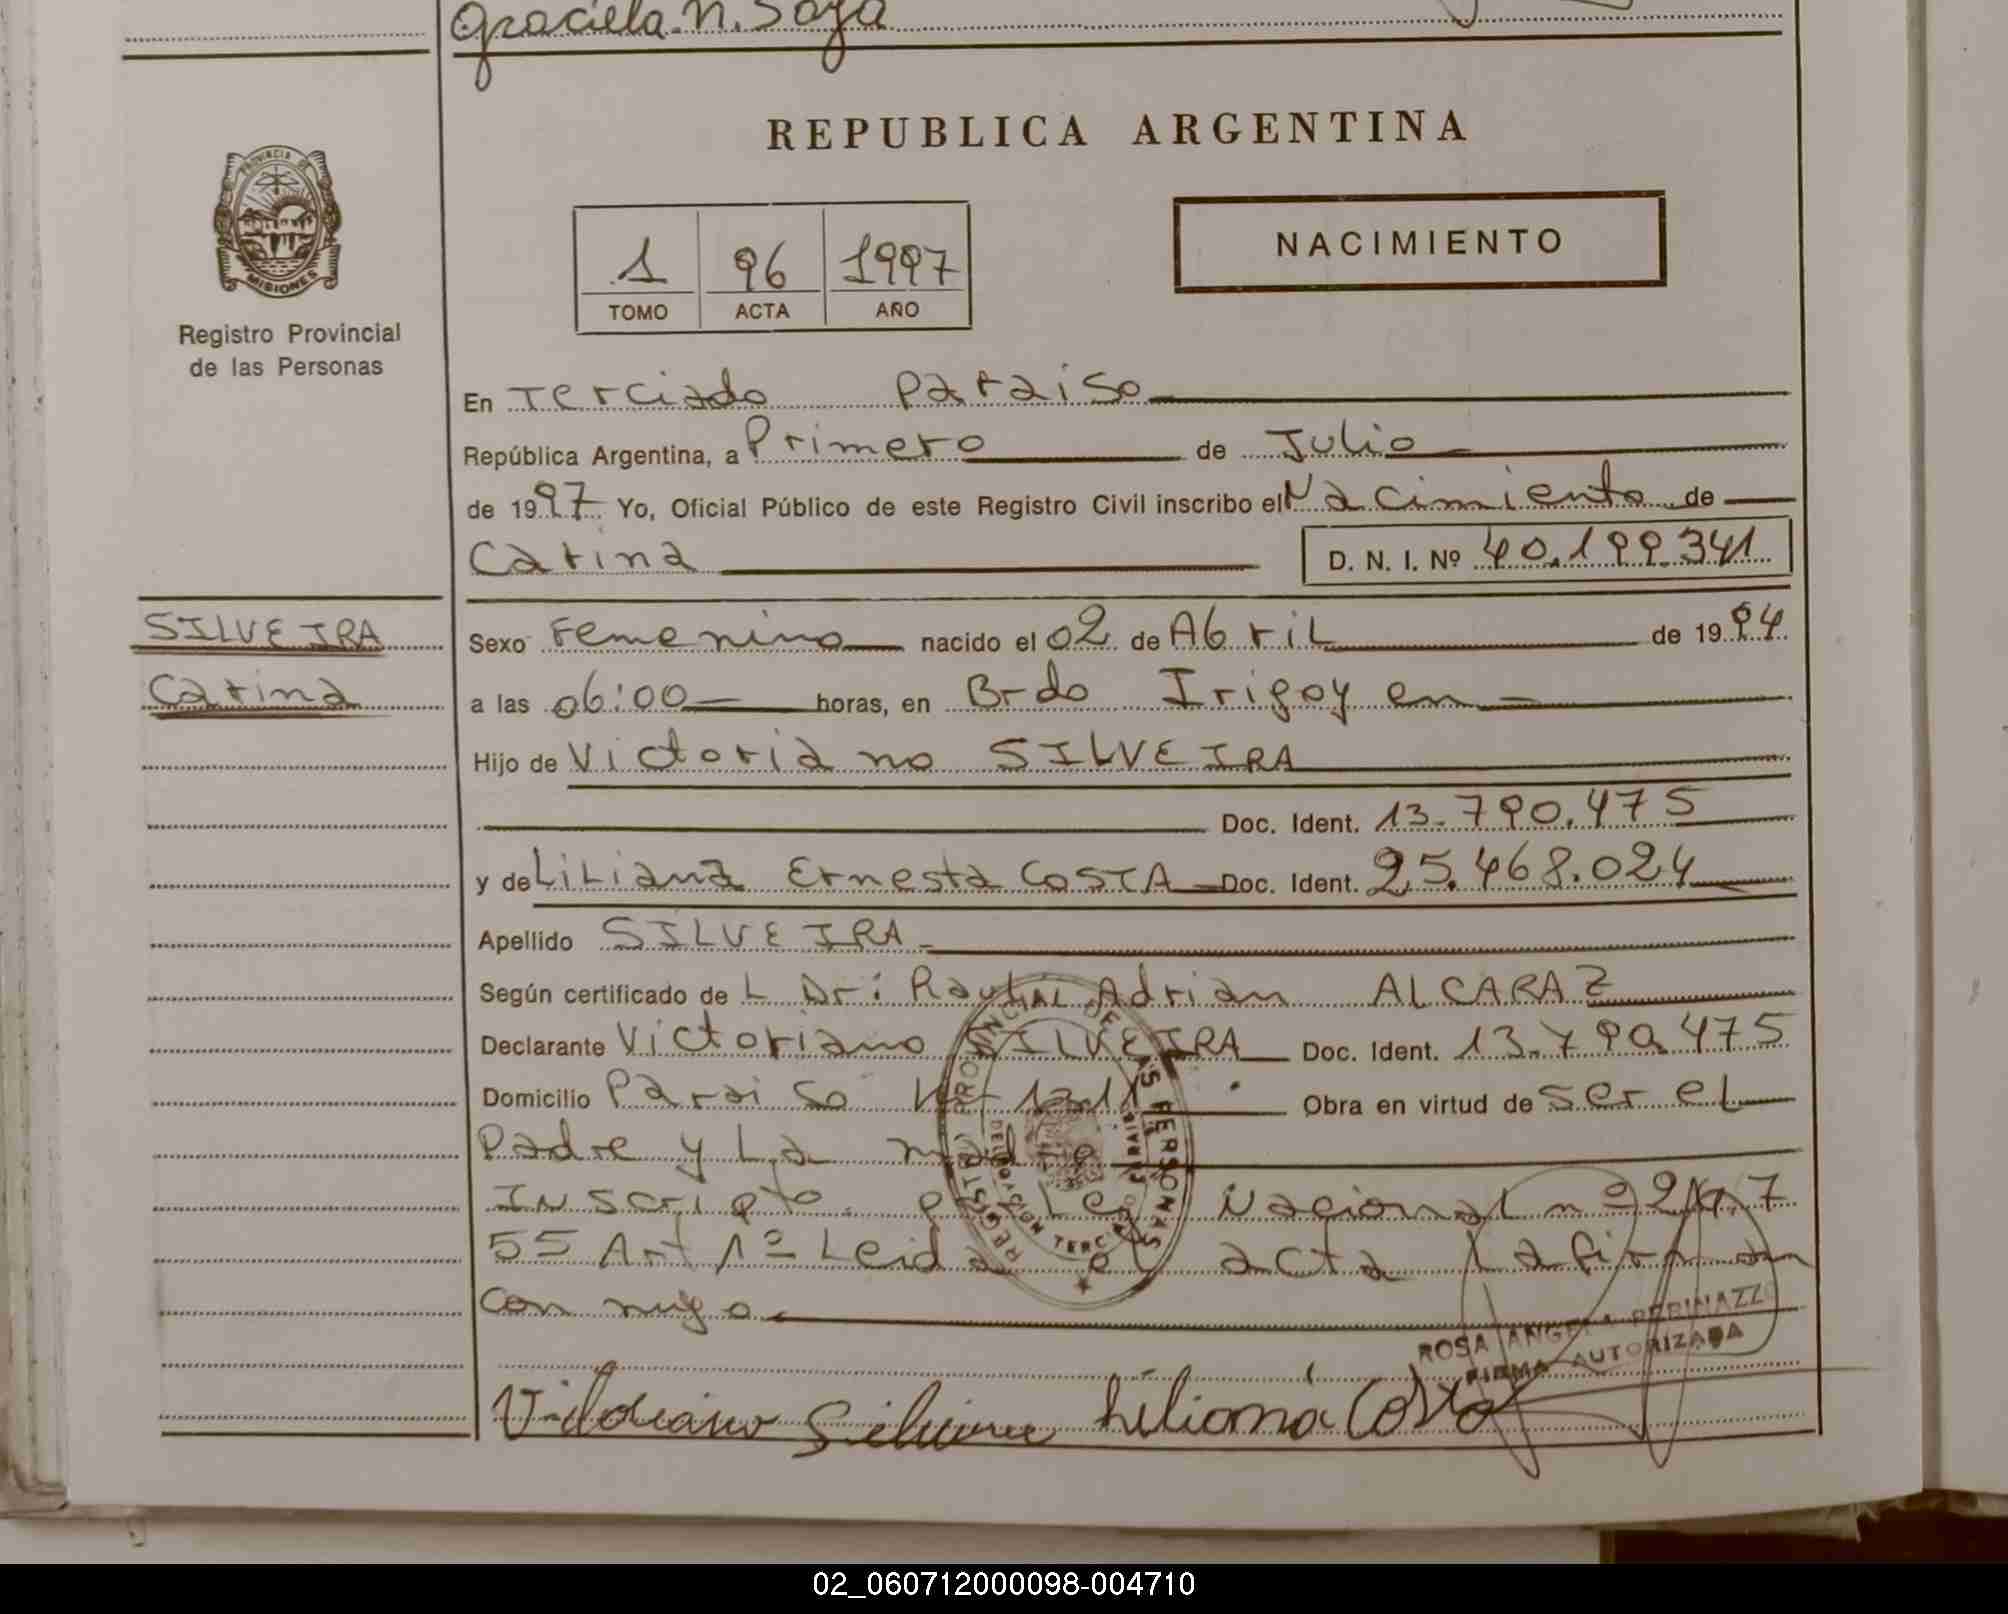 Graciela. N. Soza
REPUBLICA ARGENTINA
PROVINCIA DE
MISIONES
Registro Provincial
de las Personas
1 96 1997
TOMO ACTA AÑO
NACIMIENTO
En Terciado Paraiso
República Argentina, a Primero de Julio
de 1997 Yo, Oficial Público de este Registro Civil inscribo el Nacimiento de
Carina D. N. I. Nº 40.199.341
SILVEIRA
Carina
Sexo Femenino nacido el 02 de Abril de 1994
a las 06:00 horas, en Brdo Irigoyen
Hijo de Victoriano SILVEIRA
Doc. Ident. 13.790.475
y de Liliana Ernesta COSTA Doc. Ident. 25.468.024
Apellido SILVEIRA
Según certificado de L Dr: Raul Adrian ALCARAZ
Declarante Victoriano SILVEIRA Doc. Ident. 13.790.475
Domicilio Paraiso Obra en virtud de ser el
Padre y La madre
Inscripto Nacional nº 247
55 Art 1º Leida el acta La firman
con migo
REGISTRO PROVINCIAL DE LAS PERSONAS
ROSA ANGELA PERINAZZO
FIRMA AUTORIZADA
Victoriano Silveira Liliana Costa
02_060712000098-004710